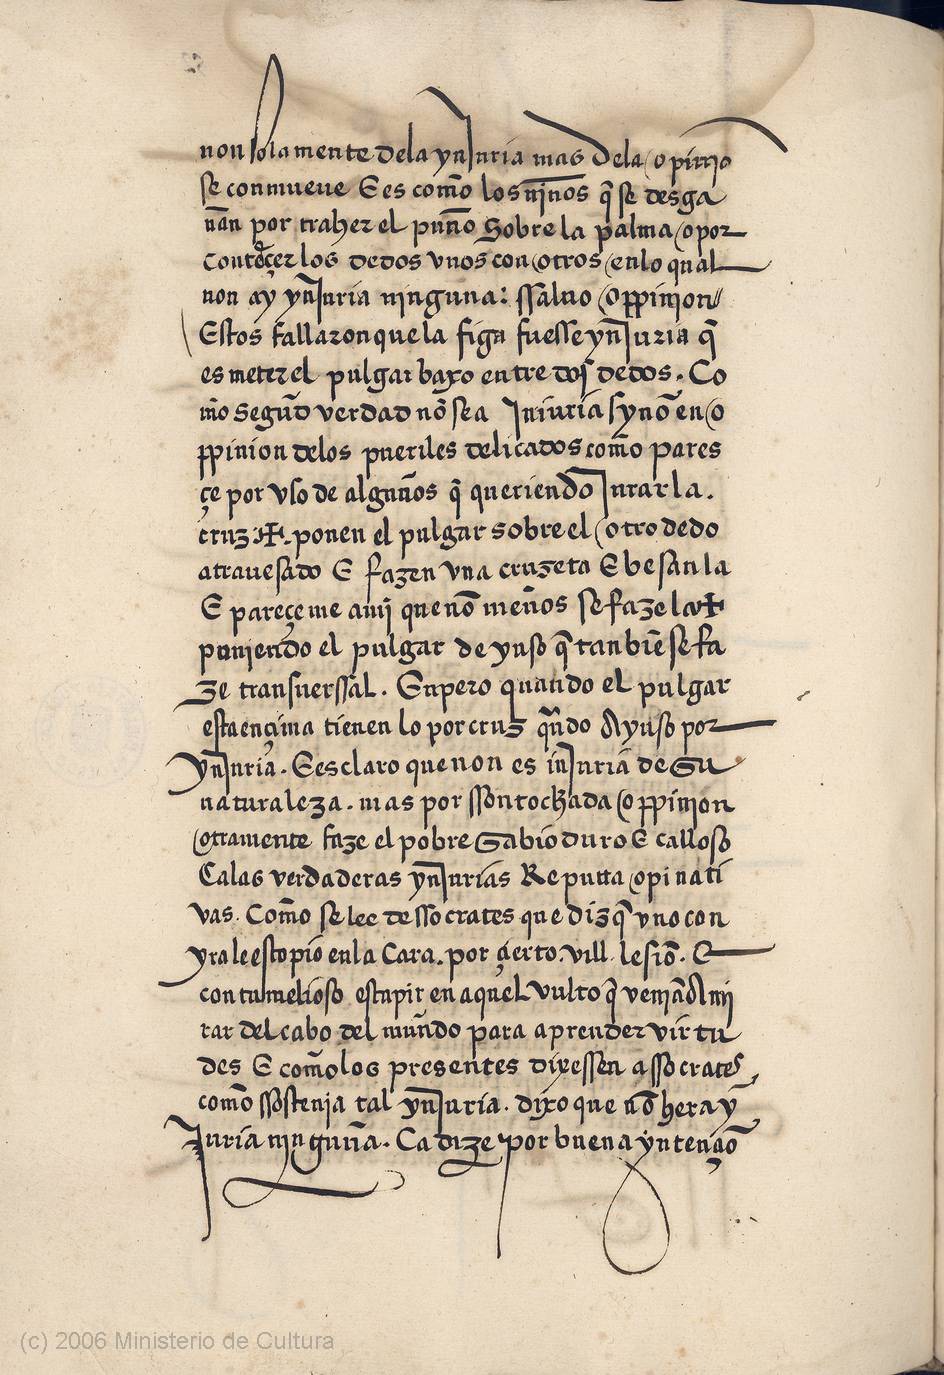 non solamente dela ynJuria mas dela opinio
se conmueve E es como̅ los nin̅os q̅ se desga
n̅an por traher el pun̅o sobre la palma o por
los dedos vnos con otros en lo qual
non ay ynJuria ninguna: ssaluo oppinion
Estos fallaron que la figa fuesse ynJuria q̅
es meter el pulgar baxo entre dos dedos. Co
mo̅ segund verdad no̅ sea Iniuria syno̅ en o
ppinion delos pueriles delicados como̅ pares
çe por vso de algun̅os q̅ queriendo Jurar la.
cruz ✠. ponen el pulgar sobre el otro dedo
atrauesado E fazen vna cruzeta E besan la
E pareçe me a mij que no̅ men̅os se faze la ✠
puniendo el pulgar de yuso q̅ tanbie̅ se fa
ze transuerssal. Enpero quando el pulgar
esta ençima tienen lo por cruz qn̅do Ayuso por
ynJuria. E es claro que non es inJuria de su
naturaleza. mas por ssontochada oppinion
otramente faze el pobre sabio duro E calloso
Ca las verdaderas ynJurias Reputta opinati
vas. Como̅ se lee de ssocrates que diz q̅ vno con
yra le escopio̅ en la Cara. por çierto. vill. lesio̅. E
contumelioso escupir en aquel vulto q̅ venia̅ A mj
rar del cabo del mun̅do para aprender virtu
des E como̅ los presentes dixessen a ssocrates
como̅ ssostenja tal ynJuria. dixo que no̅ hera yn̅
Juria njngun̅a. Ca dize por buena yntençio̅
(c) 2006 Ministerio de Cultura